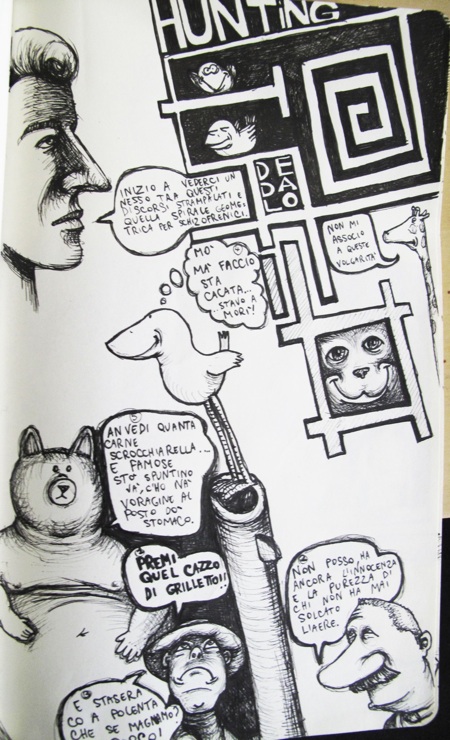 HUNTING
DE
DA
LO
INIZIO A VEDERCI UN
NESSO TRA QUESTI
DISCORSI STRAMPALATI E
QUELLA SPIRALE GEOME-
TRICA PER SCHIZOFRENICI.
NON MI
ASSOCIO
A QUESTE
VOLGARITÀ
MO'
MA' FACCIO
STA
CACATA...
...STAVO A
MORÌ!
AN VEDI QUANTA
CARNE
SCROCCHIARELLA...
E FAMOSE
STO SPUNTINO
VA', C'HO NA'
VORAGINE AL
POSTO DO
STOMACO.
PREMI
QUEL CAZZO
DI GRILLETTO!!
NON POSSO, HA
ANCORA L'INNOCENZA
E LA PUREZZA DI
CHI NON HA MAI
SOLCATO
L'AERE.
E STASERA
CO A POLENTA
CHE SE MAGNAMO?